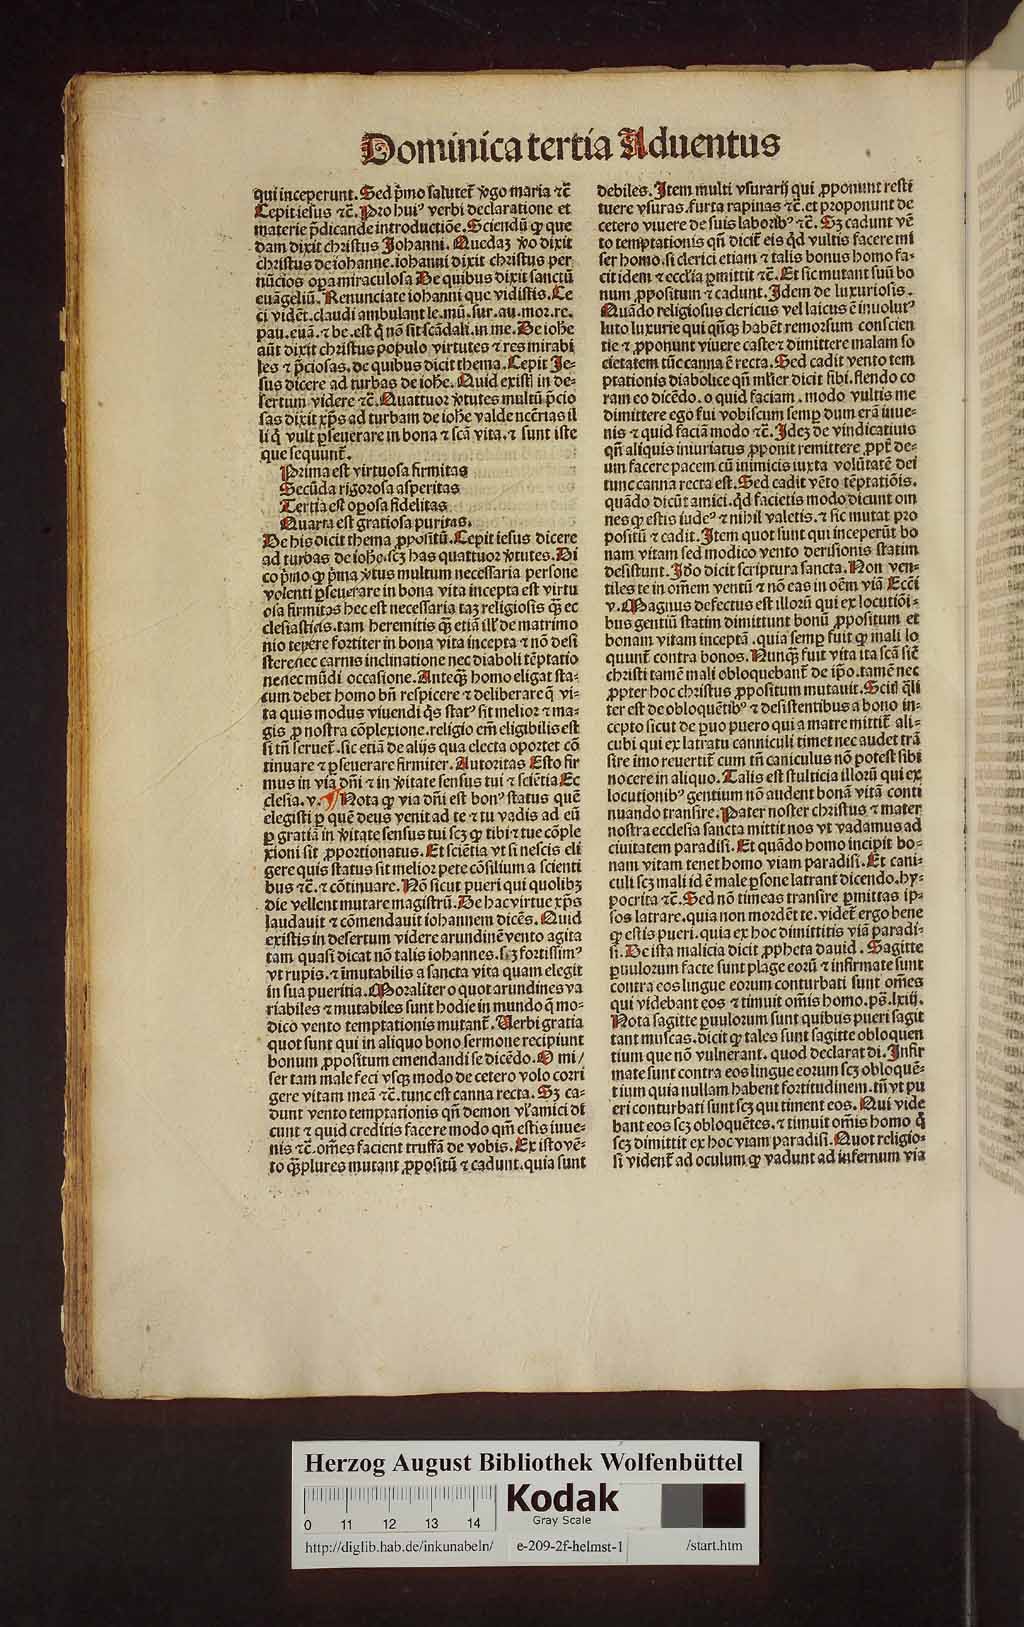 Dominica tertia Aduentus
qui inceperunt. Sed p̄mo salutet᷑ v̓go maria ⁊c̄
Cepit iesus ⁊c̄. Pro huiꝰ verbi declaratione et
materie p̄dicande introductiōe. Sciendū ꝙ que
dam dixit christus Johanni. Quedaꝫ v̓o dixit
christus de iohanne. iohanni dixit christus per
nūcios oꝑa miraculosa De quibus dixit sanctū
euāgeliū. Renunciate iohanni que vidistis. Ce
ci vidēt. claudi ambulant le. mū. sur. au. mor. re.
pau. euā. ⁊ be. est q̇ nō sit scādali. in me. De ioh̄e
aūt dixit christus populo virtutes ⁊ res mirabi
les ⁊ p̄ciosas. de quibus dicit thema. Cepit Je⸗
sus dicere ad turbas de ioh̄e. Quid existi in de⸗
sertum videre ⁊c̄. Quattuor v̓tutes multū p̄cio
sas dixit xp̄s ad turbam de ioh̄e valde nc̄c̄rias il
li q̇ vult ꝑseuerare in bona ⁊ scā vita. ⁊ sunt iste
que sequunt᷑.
Prima est virtuosa firmitas
Secūda rigorosa asperitas
Tertia est oꝑosa fidelitas
Quarta est gratiosa puritas.
De his dicit thema ꝓpositū. Cepit iesus dicere
ad turbas de ioh̄e. scꝫ has quattuor v̓tutes. Di
co p̄mo ꝙ p̄ma v̓tus multum necessaria persone
volenti ꝑseuerare in bona vita incepta est virtu
osa firmitas hec est necessaria taꝫ religiosis qꝫ̄ ec
clesiasticis. tam heremitis qꝫ̄ etiā ill̓ de matrimo
nio tenere fortiter in bona vita incepta ⁊ nō desi
stere nec carnis inclinatione nec diaboli tēptatio
ne nec mūdi occasione. Anteqꝫ̄ homo eligat sta⸗
tum debet homo bn̄ respicere ⁊ deliberare q̄ vi⸗
ta quis modus viuendi q̇s statꝰ sit melior ⁊ ma⸗
gis ꝓ nostra cōplexione. religio em̄ eligibilis est
si tn̄ seruet᷑. sic etiā de alijs qua electa oportet cō
tinuare ⁊ ꝑseuerare firmiter. Autoritas Esto fir
mus in via dn̄i ⁊ in v̓itate sensus tui ⁊ sciētia Ec
clesia. v. ¶ Nota ꝙ via dn̄i est bonꝰ status quē
elegisti ꝑ quē deus venit ad te ⁊ tu vadis ad eū
ꝑ gratiā in v̓itate sensus tui scꝫ ꝙ tibi ⁊ tue cōple
xioni sit ꝓportionatus. Et sciētia vt si nescis eli
gere quis status sit melior pete cōsilium a scienti
bus ⁊c̄. ⁊ cōtinuare. Nō sicut pueri qui quolibꝫ
die vellent mutare magistrū. De hac virtue xp̄s
laudauit ⁊ cōmendauit iohannem dicēs. Quid
existis in desertum videre arundinē vento agita
tam quasi dicat nō talis iohannes. sꝫ fortissimꝰ
vt rupis. ⁊ īmutabilis a sancta vita quam elegit
in sua pueritia. Moraliter o quot arundines va
riabiles ⁊ mutabiles sunt hodie in mundo q̄ mo⸗
dico vento temptationis mutant᷑. Verbi gratia
quot sunt qui in aliquo bono sermone recipiunt
bonum ꝓpositum emendandi se dicēdo. O mi/
ser tam male feci vsqꝫ modo de cetero volo corri
gere vitam meā ⁊c̄. tunc est canna recta. Sꝫ ca⸗
dunt vento temptationis qn̄ demon vl̓ amici di
cunt ⁊ quid creditis facere modo qm̄ estis iuue⸗
nis ⁊c̄. om̄es facient truffā de vobis. Ex isto vē⸗
to qꝫ̄plures mutant ꝓpositū ⁊ cadunt. quia sunt
debiles. Item multi vsurarij qui ꝓponunt resti
tuere vsuras. furta rapinas ⁊c̄. et proponunt de
cetero viuere de suis laboribꝰ ⁊c̄. Sꝫ cadunt vē
to temptationis qn̄ dicit᷑ eis q̇d vultis facere mi
ser homo. si clerici etiam ⁊ talis bonus homo fa⸗
cit idem ⁊ ecclīa ꝑmittit ⁊c̄. Et sic mutant suū bo
num ꝓpositum ⁊ cadunt. Idem de luxuriosis.
Quādo religiosus clericus vel laicus ē inuolutꝰ
luto luxurie qui qn̄qꝫ habēt remorsum conscien
tie ⁊ ꝓponunt viuere caste ⁊ dimittere malam so
cietatem tūc canna ē recta. Sed cadit vento tem
ptationis diabolice qn̄ mlier dicit sibi. flendo co
ram eo dicēdo. o quid faciam. modo vultis me
dimittere ego fui vobiscum semꝑ dum erā iuue⸗
nis ⁊ quid faciā modo ⁊c̄. Ideꝫ de vindicatiuis
qn̄ aliquis iniuriatus ꝓponit remittere ꝓpt̓ de⸗
um facere pacem cū inimicis iuxta volūtatē dei
tunc canna recta est. Sed cadit vēto tēptatiōis.
quādo dicūt amici. q̇d facietis modo dicunt om
nes ꝙ estis iudeꝰ ⁊ nihil valetis. ⁊ sic mutat pro
positū ⁊ cadit. Item quot sunt qui inceperūt bo
nam vitam sed modico vento derisionis statim
desistunt. Id̓o dicit scriptura sancta. Non ven⸗
tiles te in om̄em ventū ⁊ nō eas in oēm viā Ecc̄i
v. Magnus defectus est illorū qui ex locutiōi⸗
bus gentiū statim dimittunt bonū ꝓpositum et
bonam vitam inceptā. quia semꝑ fuit ꝙ mali lo
quunt᷑ contra bonos. Nunqꝫ̄ fuit vita ita scā sic̄
christi tamē mali obloquebant᷑ de ip̄o. tamē nec
ꝓpter hoc christus ꝓpositum mutauit. Scitꝭ q̄li
ter est de obloquētibꝰ ⁊ desistentibus a bono in⸗
cepto sicut de ꝑuo puero qui a matre mittit᷑ ali⸗
cubi qui ex latratu canniculi timet nec audet trā
sire imo reuertit᷑ cum tn̄ caniculus nō potest sibi
nocere in aliquo. Talis est stulticia illorū qui ex
locutionibꝰ gentium nō audent bonā vitā conti
nuando transire. Pater noster christus ⁊ mater
nostra ecclesia sancta mittit nos vt vadamus ad
ciuitatem paradisi. Et quādo homo incipit bo⸗
nam vitam tenet homo viam paradisi. Et cani⸗
culi scꝫ mali id ē male ꝑsone latrant dicendo. hy⸗
pocrita ⁊c̄. Sed nō timeas transire ꝑmittas ip⸗
sos latrare. quia non mordēt te. videt᷑ ergo bene
ꝙ estis pueri. quia ex hoc dimittitis viā paradi⸗
si. De ista malicia dicit ꝓpheta dauid. Sagitte
ꝑuulorum facte sunt plage eorū ⁊ infirmate sunt
contra eos lingue eorum conturbati sunt om̄es
qui videbant eos ⁊ timuit om̄is homo. ps̄. lxiij.
Nota sagitte ꝑuulorum sunt quibus pueri sagit
tant muscas. dicit ꝙ tales sunt sagitte obloquen
tium que nō vulnerant. quod declarat di. Infir
mate sunt contra eos lingue eorum scꝫ obloquē⸗
tium quia nullam habent fortitudinem. tn̄ vt pu
eri conturbati sunt scꝫ qui timent eos. Qui vide
bant eos scꝫ obloquētes. ⁊ timuit om̄is homo q̇
scꝫ dimittit ex hoc viam paradisi. Quot religio⸗
si vident᷑ ad oculum ꝙ vadunt ad infernum via
Herzog August Bibliothek Wolfenbüttel
0 11 12 13 14
Kodak
Gray Scale
http://diglib.hab.de/inkunabeln/ e-209-2f-helmst-1 /start.htm